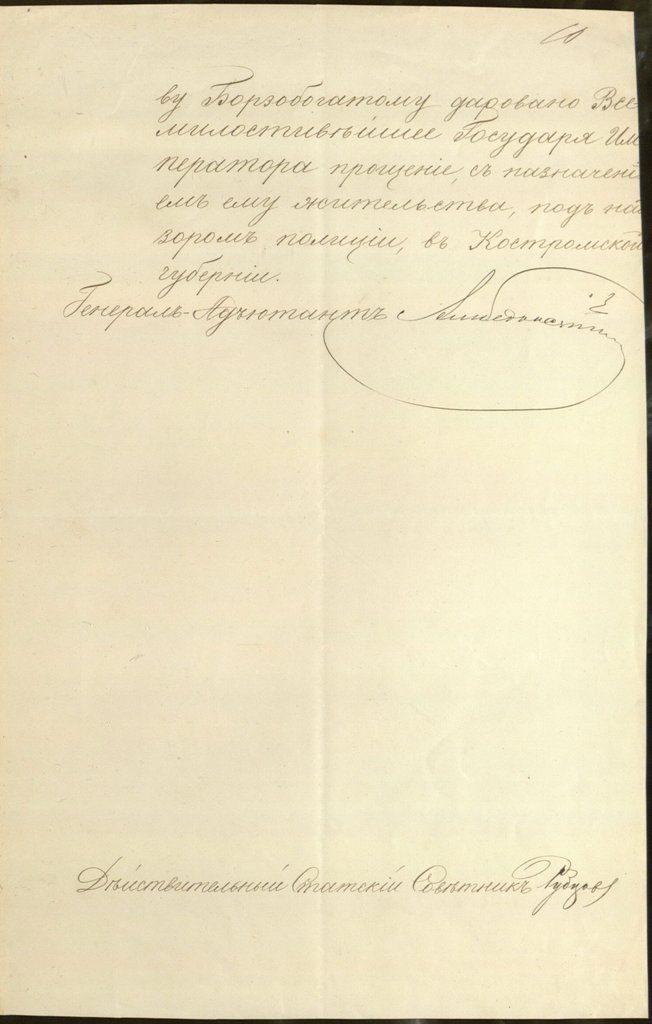 ву Борзобогатому даровано Все
милостивѣйшее Государя Им
ператора прощеніе, съ назначені
емъ ему жительства, подъ над
зоромъ полиціи, въ Костромской
губерніи.
Генералъ-Адъютантъ
Дѣйствительный Статскій Совѣтникъ Рубцовъ